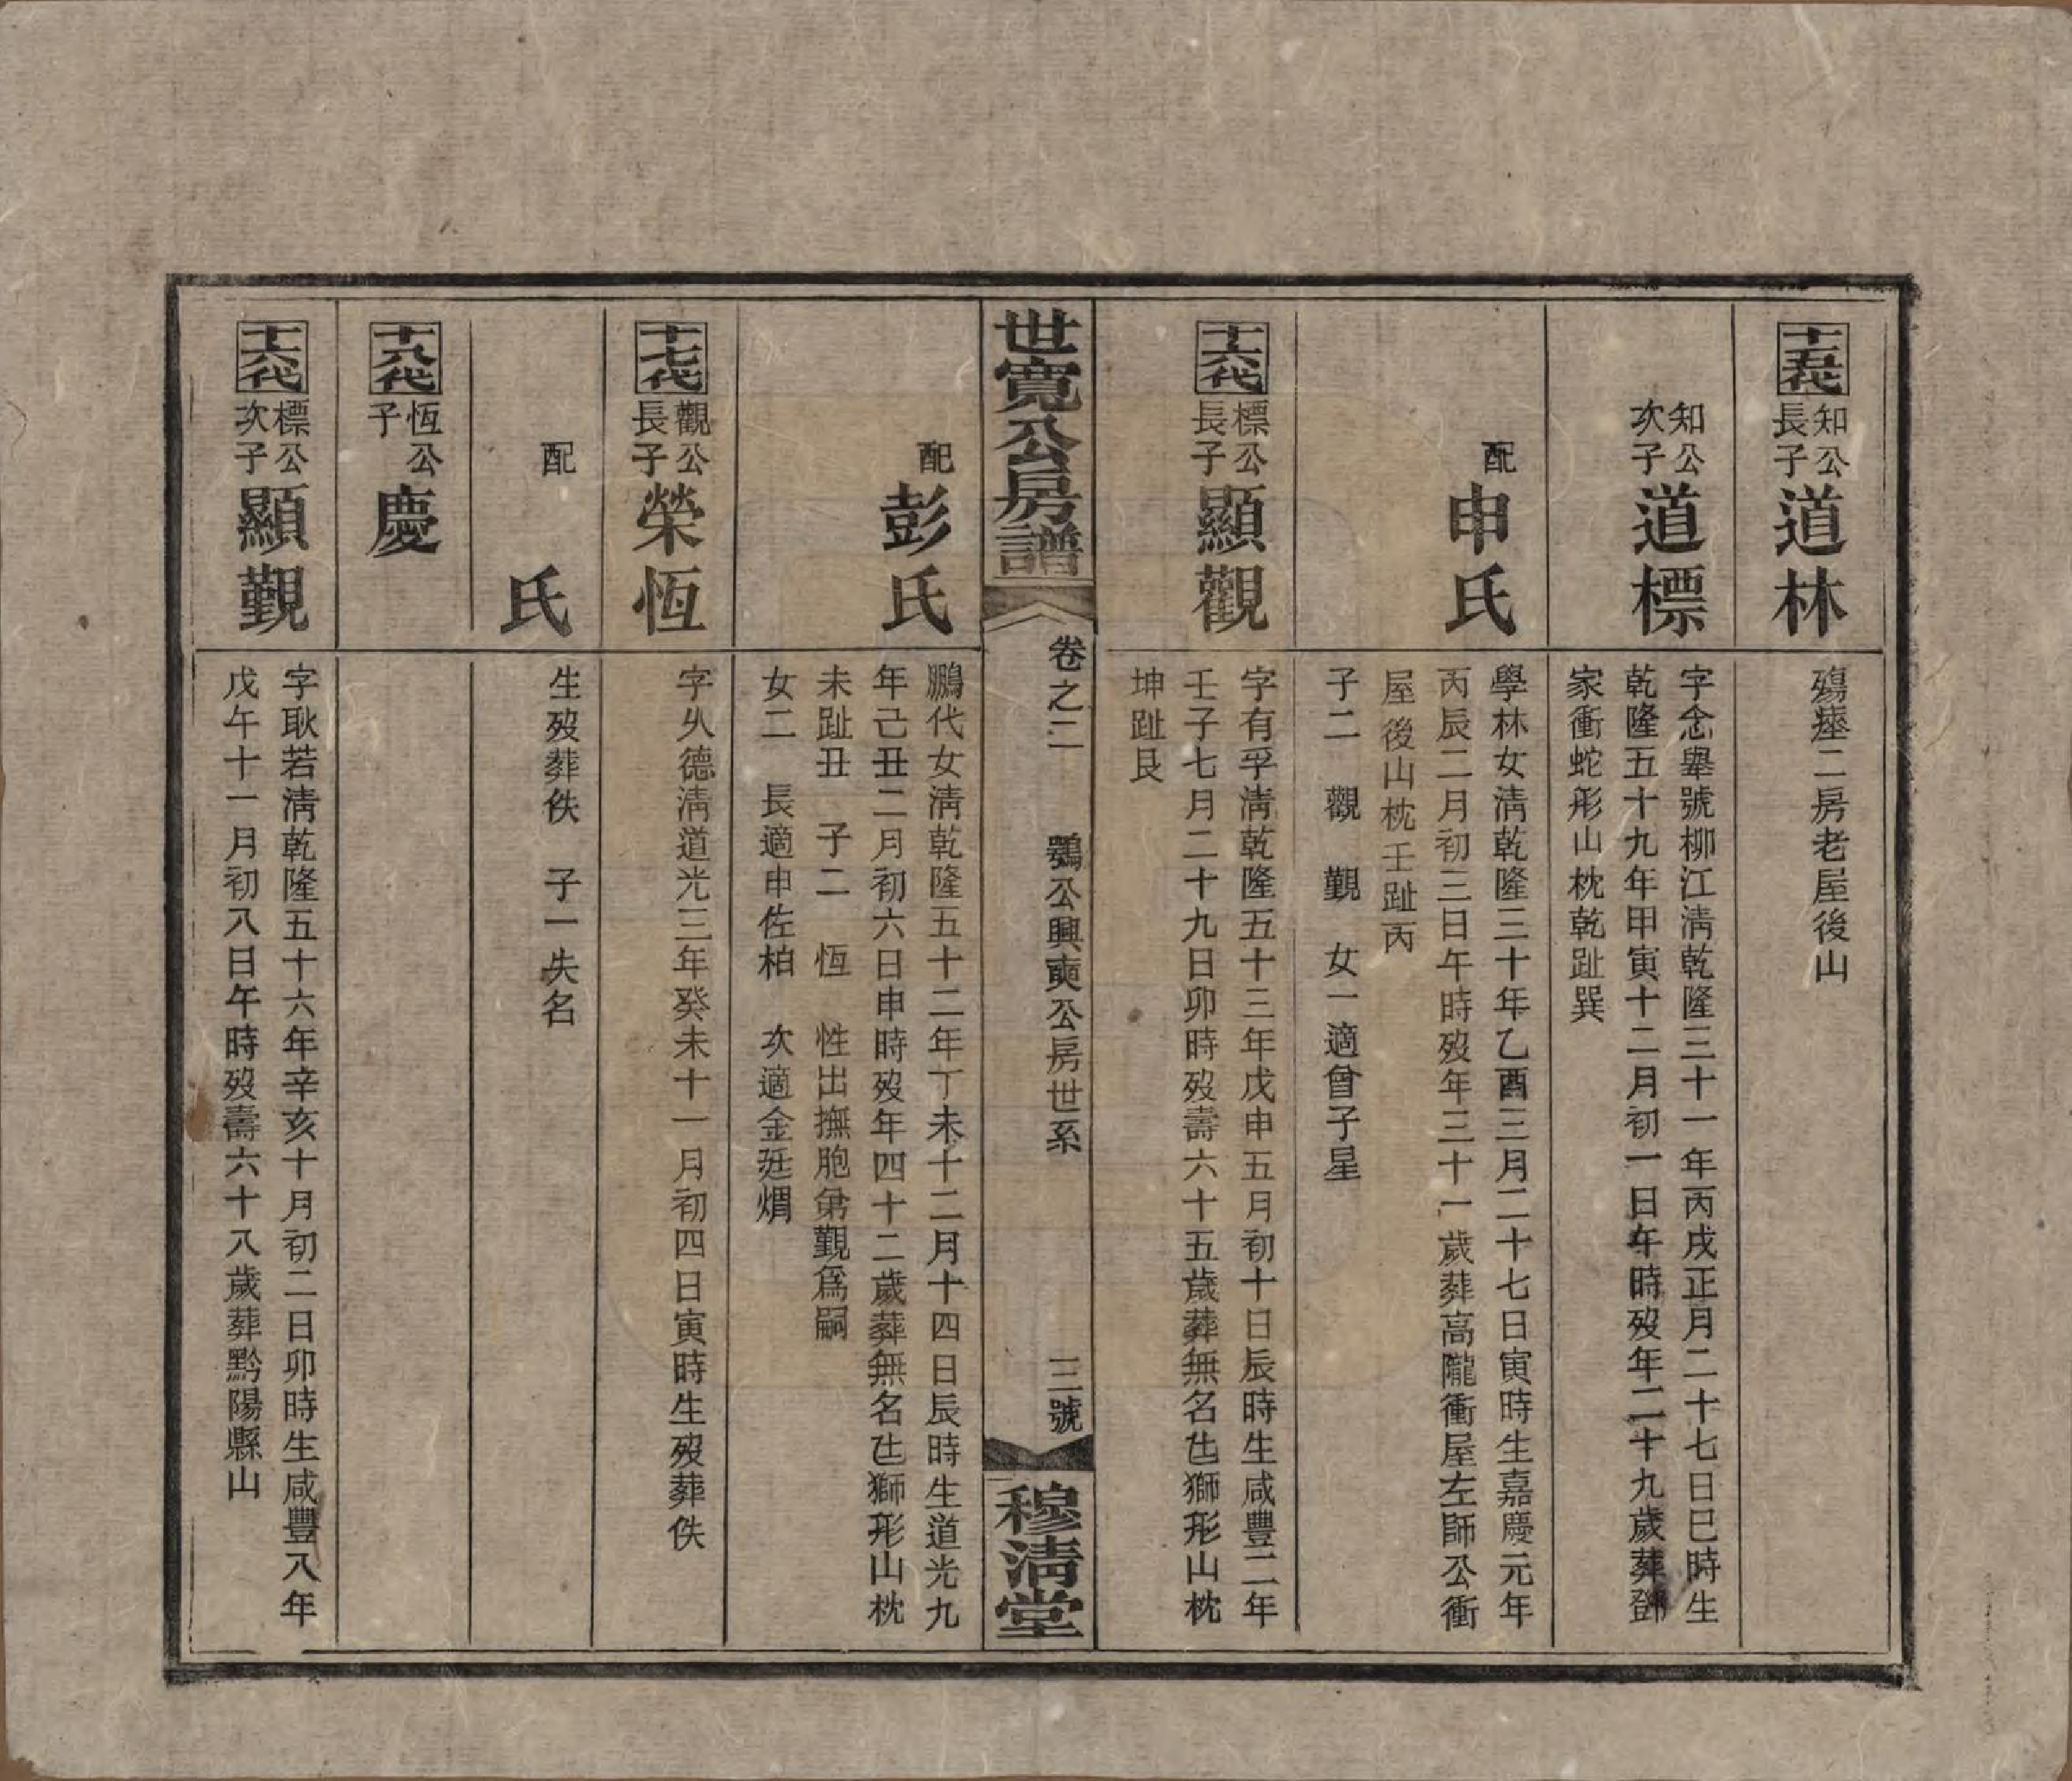 十五代
知公長子
道林
殤瘞二房老屋後山
知公次子
道標
字念皋號柳江淸乾隆三十一年丙戌正月二十七日巳時生
乾隆五十九年甲寅十二月初一日午時歿年二十九歲葬鄧
家衝蛇形山枕乾趾巽
配
申氏
學林女淸乾隆三十年乙酉三月二十七日寅時生嘉慶元年
丙辰二月初三日午時歿年三十一歲葬高隴衝屋左師公衝
屋後山枕壬趾丙
子二 觀 覲 女一適曾子星
十六代
標公長子
顯觀
字有孚淸乾隆五十三年戊申五月初十日辰時生咸豐二年
壬子七月二十九日卯時歿壽六十五歲葬無名凼獅形山枕
坤趾艮
世寬公房譜
卷之二
鸚公興奭公房世系
三號
穆淸堂
配
彭氏
鵬代女淸乾隆五十二年丁未十二月十四日辰時生道光九
年己丑二月初六日申時歿年四十二歲葬無名凼獅形山枕
未趾丑 子二 恆 性出撫胞弟覲爲嗣
女二 長適申佐柏 次適金廷焆
十七代
觀公長子
榮恆
字乆德淸道光三年癸未十一月初四日寅時生歿葬佚
配
氏
生歿葬佚 子一失名
十八代
恆公子
慶
十六代
標公次子
顯覲
字耿若淸乾隆五十六年辛亥十月初二日卯時生咸豐八年
戊午十一月初八日午時歿壽六十八歲葬黔陽縣山